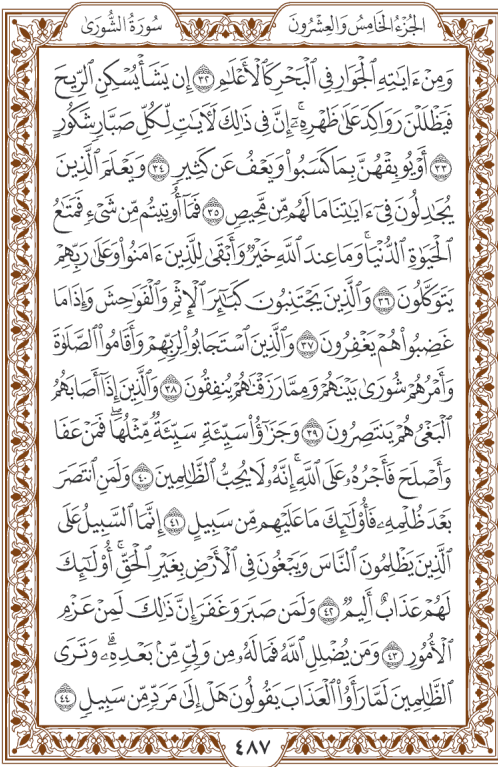 الجزء الخامس والعشرون
سورة الشورى
وَمِنْ ءَايَٰتِهِ ٱلْجَوَارِ فِى ٱلْبَحْرِ كَٱلْأَعْلَٰمِ ٣٢ إِن يَشَأْ يُسْكِنِ ٱلرِّيحَ
فَيَظْلَلْنَ رَوَاكِدَ عَلَىٰ ظَهْرِهِۦٓ ۚ إِنَّ فِى ذَٰلِكَ لَءَايَٰتٍ لِّكُلِّ صَبَّارٍ شَكُورٍ
٣٣ أَوْ يُوبِقْهُنَّ بِمَا كَسَبُوا۟ وَيَعْفُ عَن كَثِيرٍ ٣٤ وَيَعْلَمَ ٱلَّذِينَ
يُجَٰدِلُونَ فِىٓ ءَايَٰتِنَا مَا لَهُم مِّن مَّحِيصٍ ٣٥ فَمَآ أُوتِيتُم مِّن شَىْءٍ فَمَتَٰعُ
ٱلْحَيَوٰةِ ٱلدُّنْيَا ۖ وَمَا عِندَ ٱللَّهِ خَيْرٌ وَأَبْقَىٰ لِلَّذِينَ ءَامَنُوا۟ وَعَلَىٰ رَبِّهِمْ
يَتَوَكَّلُونَ ٣٦ وَٱلَّذِينَ يَجْتَنِبُونَ كَبَٰٓئِرَ ٱلْإِثْمِ وَٱلْفَوَٰحِشَ وَإِذَا مَا
غَضِبُوا۟ هُمْ يَغْفِرُونَ ٣٧ وَٱلَّذِينَ ٱسْتَجَابُوا۟ لِرَبِّهِمْ وَأَقَامُوا۟ ٱلصَّلَوٰةَ
وَأَمْرُهُمْ شُورَىٰ بَيْنَهُمْ وَمِمَّا رَزَقْنَٰهُمْ يُنفِقُونَ ٣٨ وَٱلَّذِينَ إِذَآ أَصَابَهُمُ
ٱلْبَغْىُ هُمْ يَنتَصِرُونَ ٣٩ وَجَزَٰٓؤُا۟ سَيِّئَةٍ سَيِّئَةٌ مِّثْلُهَا ۖ فَمَنْ عَفَا
وَأَصْلَحَ فَأَجْرُهُۥ عَلَى ٱللَّهِ ۚ إِنَّهُۥ لَا يُحِبُّ ٱلظَّٰلِمِينَ ٤٠ وَلَمَنِ ٱنتَصَرَ
بَعْدَ ظُلْمِهِۦ فَأُو۟لَٰٓئِكَ مَا عَلَيْهِم مِّن سَبِيلٍ ٤١ إِنَّمَا ٱلسَّبِيلُ عَلَى
ٱلَّذِينَ يَظْلِمُونَ ٱلنَّاسَ وَيَبْغُونَ فِى ٱلْأَرْضِ بِغَيْرِ ٱلْحَقِّ ۚ أُو۟لَٰٓئِكَ
لَهُمْ عَذَابٌ أَلِيمٌ ٤٢ وَلَمَن صَبَرَ وَغَفَرَ إِنَّ ذَٰلِكَ لَمِنْ عَزْمِ
ٱلْأُمُورِ ٤٣ وَمَن يُضْلِلِ ٱللَّهُ فَمَا لَهُۥ مِن وَلِىٍّ مِّنۢ بَعْدِهِۦ ۗ وَتَرَى
ٱلظَّٰلِمِينَ لَمَّا رَأَوُا۟ ٱلْعَذَابَ يَقُولُونَ هَلْ إِلَىٰ مَرَدٍّ مِّن سَبِيلٍ ٤٤
٤٨٧